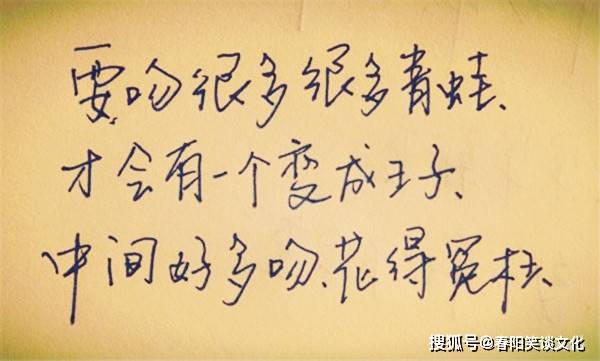 要吻很多很多青蛙、
才会有一个变成王子、
中间好多吻、花得冤枉、
搜狐号@春阳笑谈文化